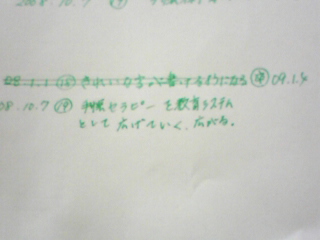 2008.10.7 ⑲
08.1.1 ⑱ きれいな字が書けるようになる 09.1.4
08.10.7 ⑲ セラピーを教育システム
として広げていく、広がる。